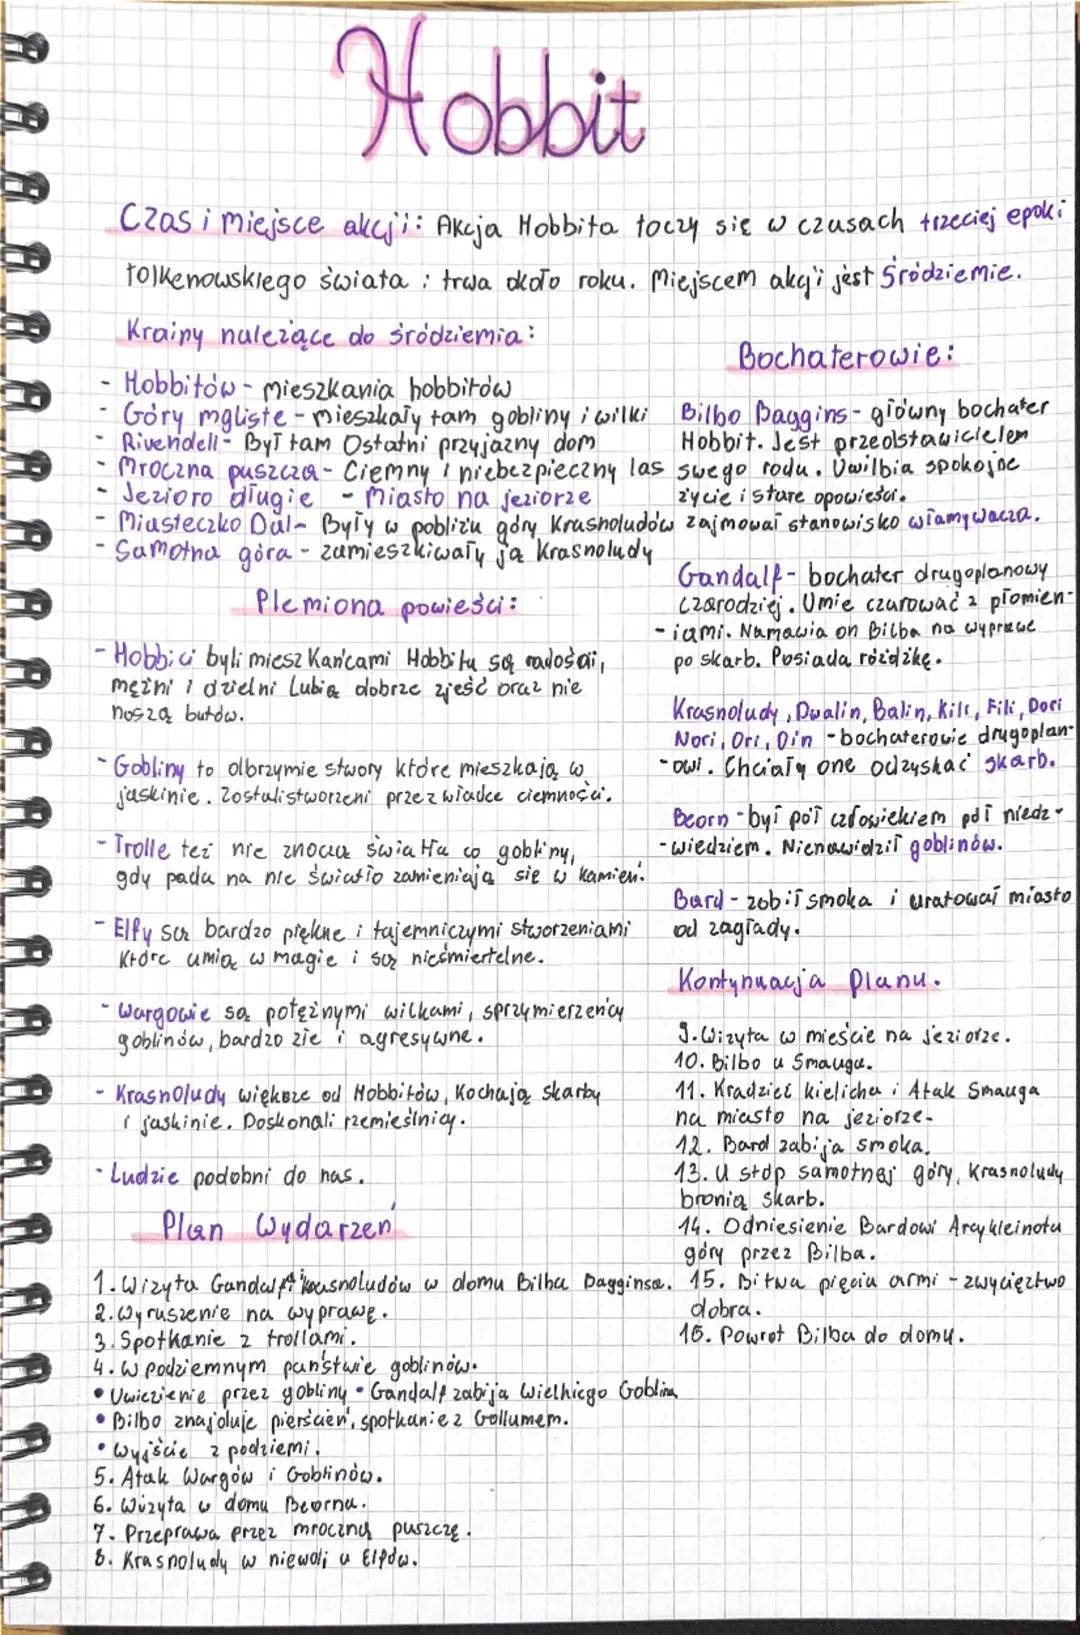 Hobbit
Czas i miejsce akcji: Akcja Hobbita toczy się w czasach trzeciej epoki
tolkenowskiego świata i trwa około roku. Miejscem akcji jest Śródziemie.
Krainy należące do śródziemia:
- Hobbitów - mieszkania hobbitów
- Góry mgliste - mieszkały tam gobliny i wilki
- Rivendell - Był tam Ostatni przyjazny dom
- Mroczna puszcza - Ciemny i niebezpieczny las
- Jezioro długie - Miasto na jeziorze
- Miasteczko Dal - Były w pobliżu góry Krasnoludów
- Samotna góra - zamieszkiwały ją Krasnoludy
Plemiona powieści:
- Hobbici byli mieszkańcami Hobbitu są radośni,
mężni i dzielni Lubią dobrze zjeść oraz nie
noszą butów.
- Gobliny to olbrzymie stwory które mieszkają w
jaskinie. Zostali stworzeni przez władce ciemności.
- Trolle też nie znocą światła co gobliny,
gdy pada na nie światło zamieniają się w kamień.
- Elfy są bardzo piękne i tajemniczymi stworzeniami
Które umią w magie i są nieśmiertelne.
- Wargowie są potężnymi wilkami, sprzymierzeńcy
goblinów, bardzo złe i agresywne.
- Krasnoludy większe od Hobbitów, Kochają skarby
i jaskinie. Doskonali rzemieślnicy.
- Ludzie podobni do nas.
Plan Wydarzeń
1. Wizyta Gandalfa i krasnoludów w domu Bilba Bagginsa.
2. Wyruszenie na wyprawę.
3. Spotkanie z trollami.
4. W podziemnym państwie goblinów.
• Uwiezienie przez gobliny • Gandalf zabija Wielkiego Goblina
• Bilbo znajduje pierścień, spotkanie z Gollumem.
• Wyjście z podziemi.
5. Atak Wargów i Goblinów.
6. Wizyta w domu Beorna.
7. Przeprawa przez mroczną puszczę.
8. Krasnoludy w niewoli u Elfów.
Bochaterowie:
Bilbo Baggins - główny bochater
Hobbit. Jest przedstawicielem
swego rodu. Uwilbia spokojne
życie i stare opowieści.
zajmował stanowisko włamywacza.
Gandalf - bochater drugoplanowy
czarodziej. Umie czarować z płomien-
- iami. Namawia on Bilba na wyprawe
po skarb. Posiada różdżkę.
Krasnoludy, Dwalin, Balin, Kili, Fili, Dori
Nori, Ori, Oin - bochaterowie drugoplan-
- owi. Chciały one odzyskać skarb.
Beorn - był pół człowiekiem pół niedz-
- wiedziem. Nienawidził goblinów.
Bard - zabił smoka i uratował miasto
od zagłady.
Kontynuacja planu.
9. Wizyta w mieście na jeziorze.
10. Bilbo u Smauga.
11. Kradzież kielicha i Atak Smauga
na miasto na jeziorze.
12. Bard zabija smoka.
13. U stóp samotnej góry, Krasnoludy
bronią skarb.
14. Odniesienie Bardowi Arcykleinotu
góry przez Bilba.
15. Bitwa pięciu armi - zwycięztwo
dobra.
16. Powrót Bilba do domu.